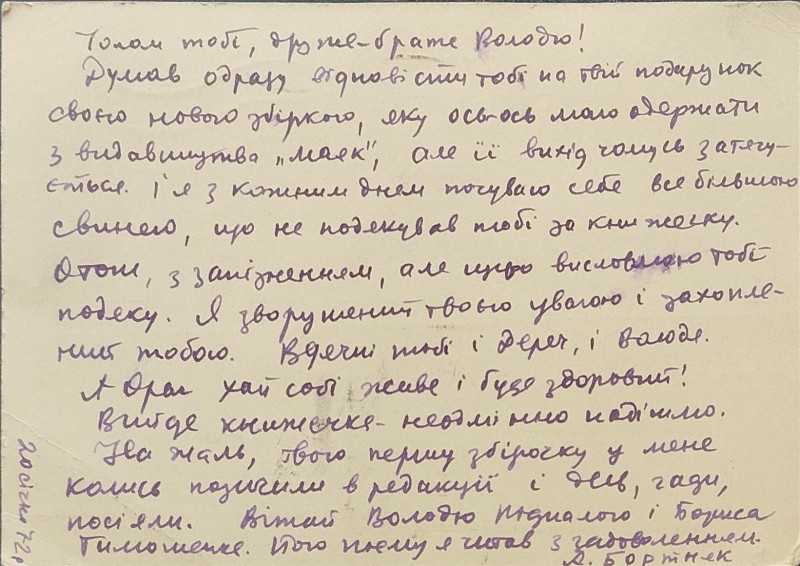 Чолом тобі, друже-брате Володю!
Думав одразу відповісти тобі на твій подарунок
своєю новою збіркою, яку ось-ось маю одержати
з видавництва „Маяк", але її вихід чомусь затягу-
ється. І я з кожним днем почуваю себе все більшою
свинею, що не подякував тобі за книжечку.
Отож, з запізненням, але щиро висловлюю тобі
подяку. Я зворушений твоєю увагою і захопле-
ний тобою. Вдячні тобі і Дереч, і Володя.
А Орач хай собі живе і буде здоровий!
Вийде книжечка - неодмінно надішлю.
На жаль, твою першу збірочку у мене
колись позичили в редакції і десь, гади,
посіяли. Вітай Володю Підпалого і Бориса
Тимошенка. Його поему я читав з задоволенням.
А. Бортняк
20 січня 72 р